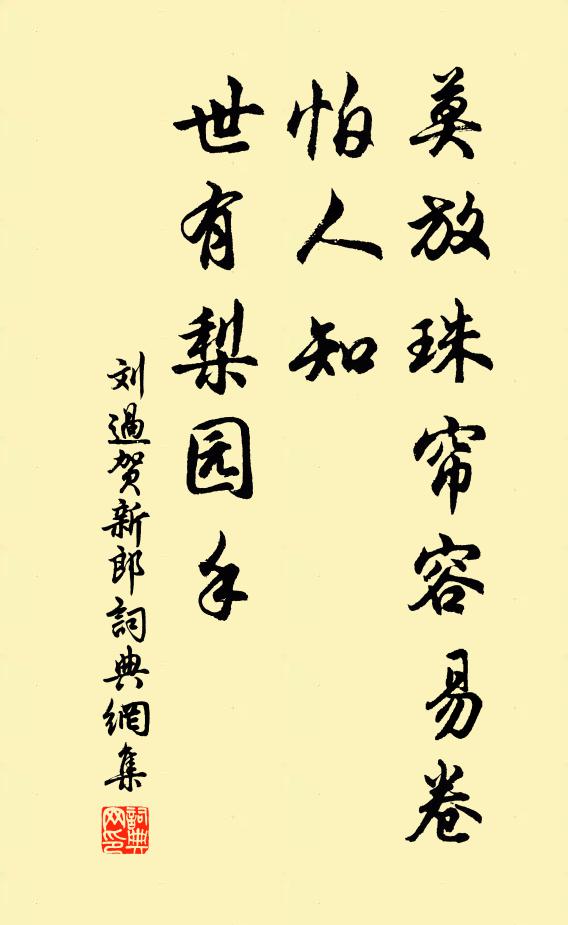 莫放珠帘容易卷
怕人知
世有梨园手
刘過贺新郎詞典網集
詞典网印